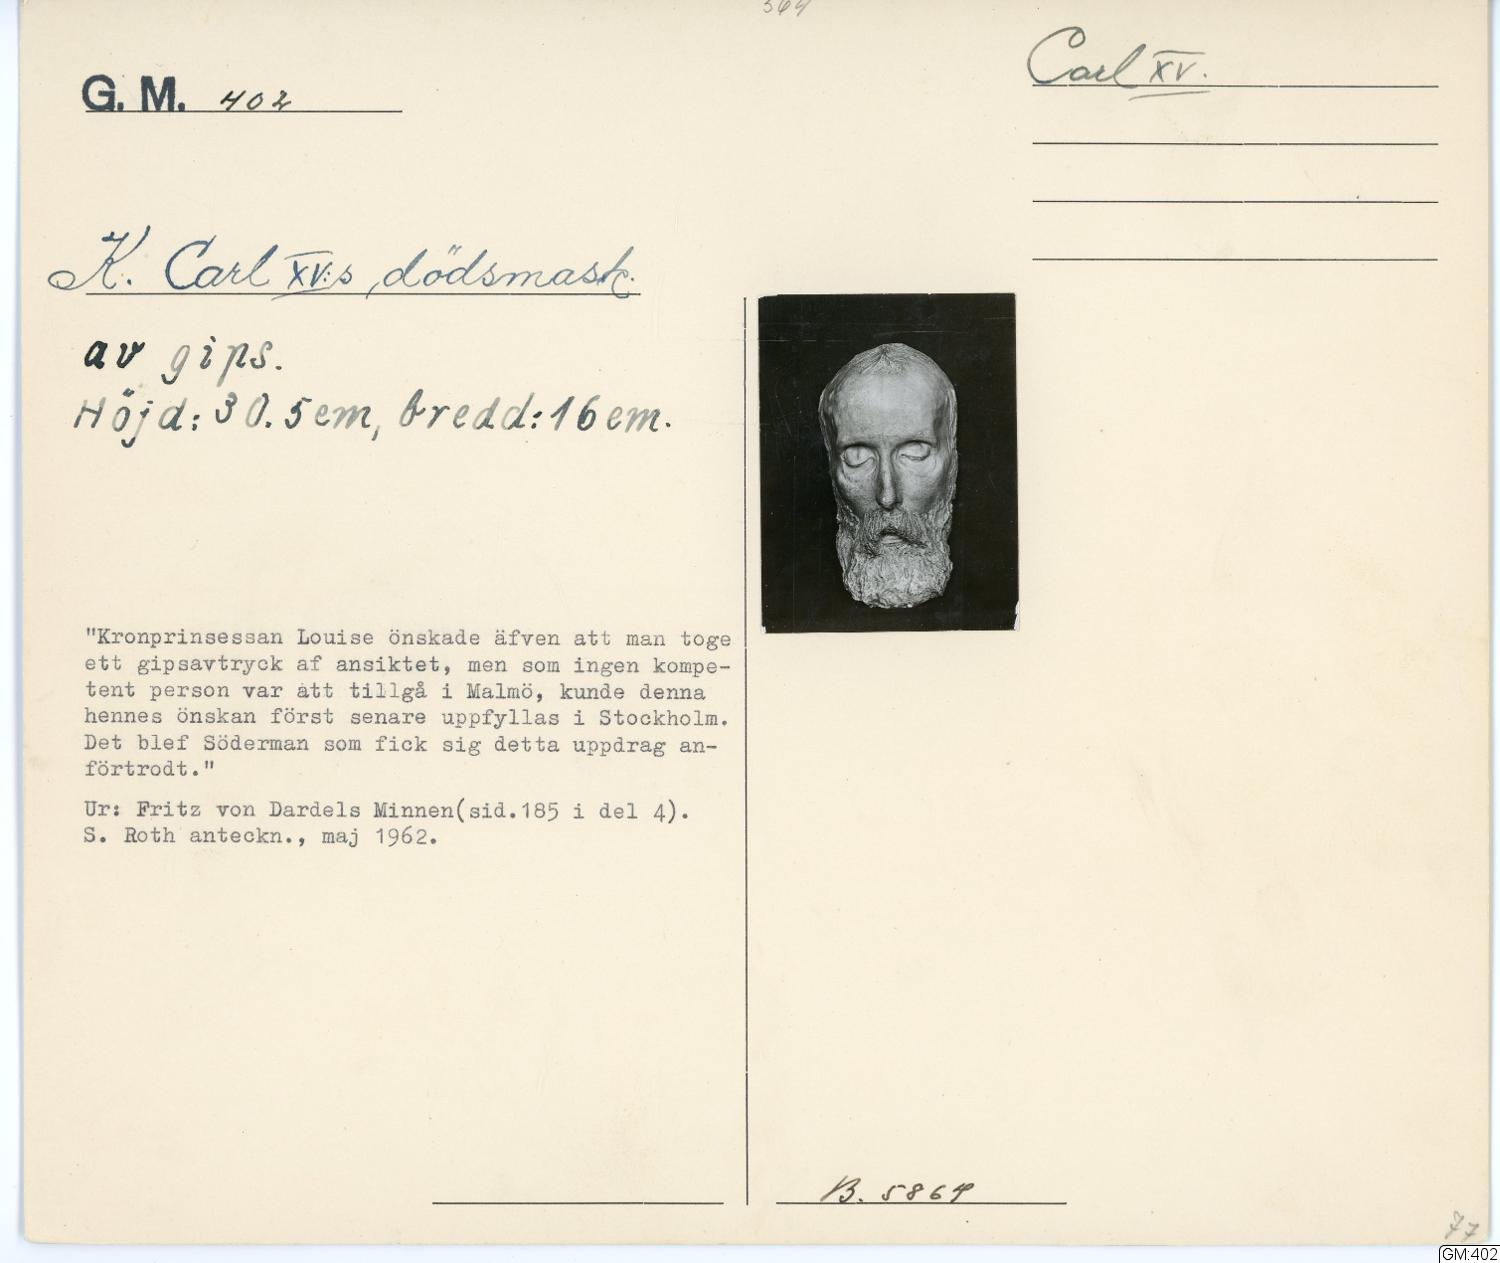 G. M. 402
Carl XV.
K. Carl XV:s dödsmask.
av gips.
Höjd: 30.5 cm, bredd: 16 cm.
"Kronprinsessan Louise önskade äfven att man toge
ett gipsavtryck af ansiktet, men som ingen kompe-
tent person var att tillgå i Malmö, kunde denna
hennes önskan först senare uppfyllas i Stockholm.
Det blef Söderman som fick sig detta uppdrag an-
förtrodt."
Ur: Fritz von Dardels Minnen(sid.185 i del 4).
S. Roth anteckn., maj 1962.
B. 5864
77
GM:402